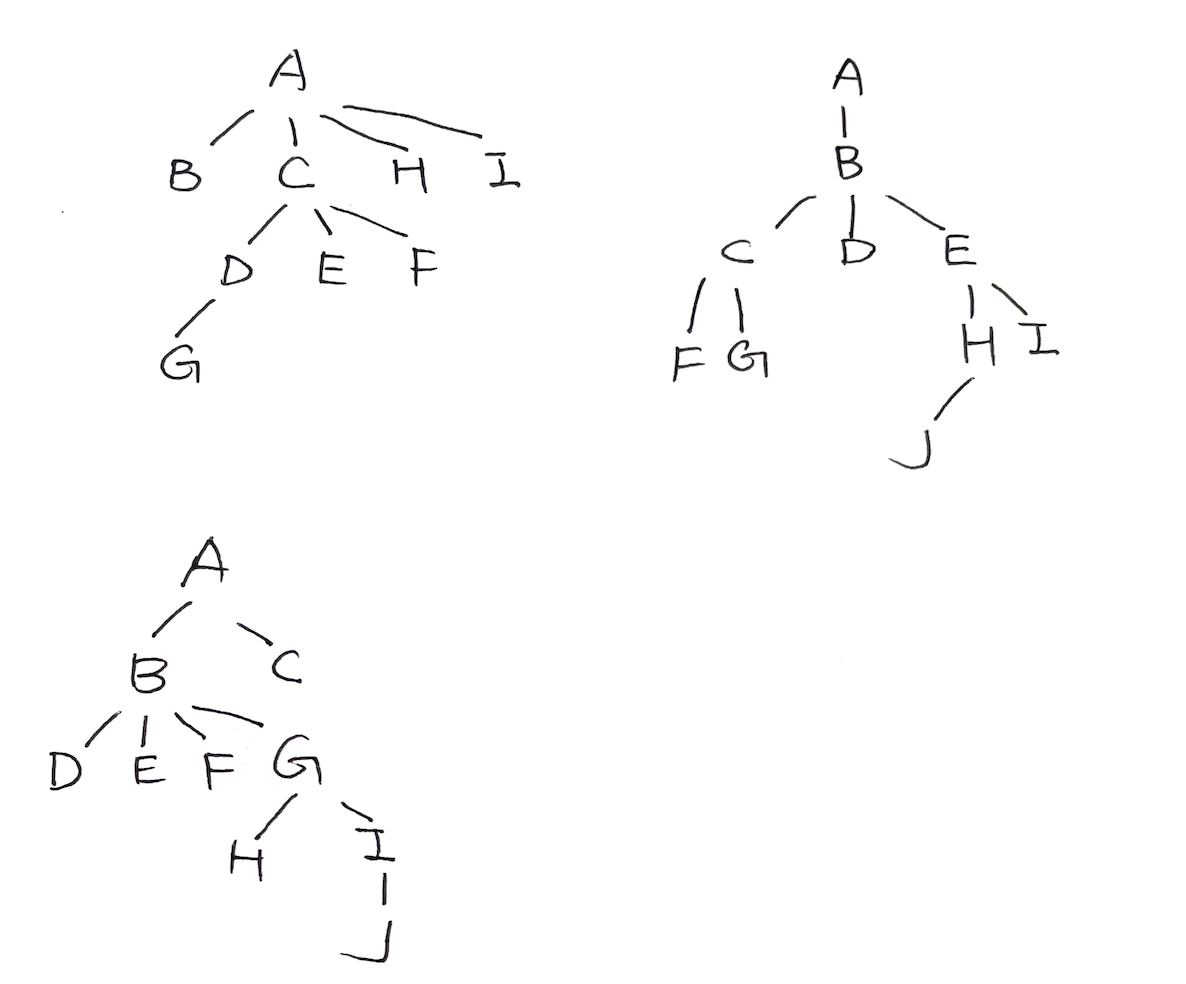 A
B C H I
D E F
G
A
B
C D E
F G H I
J
A
B C
D E F G
H I
J